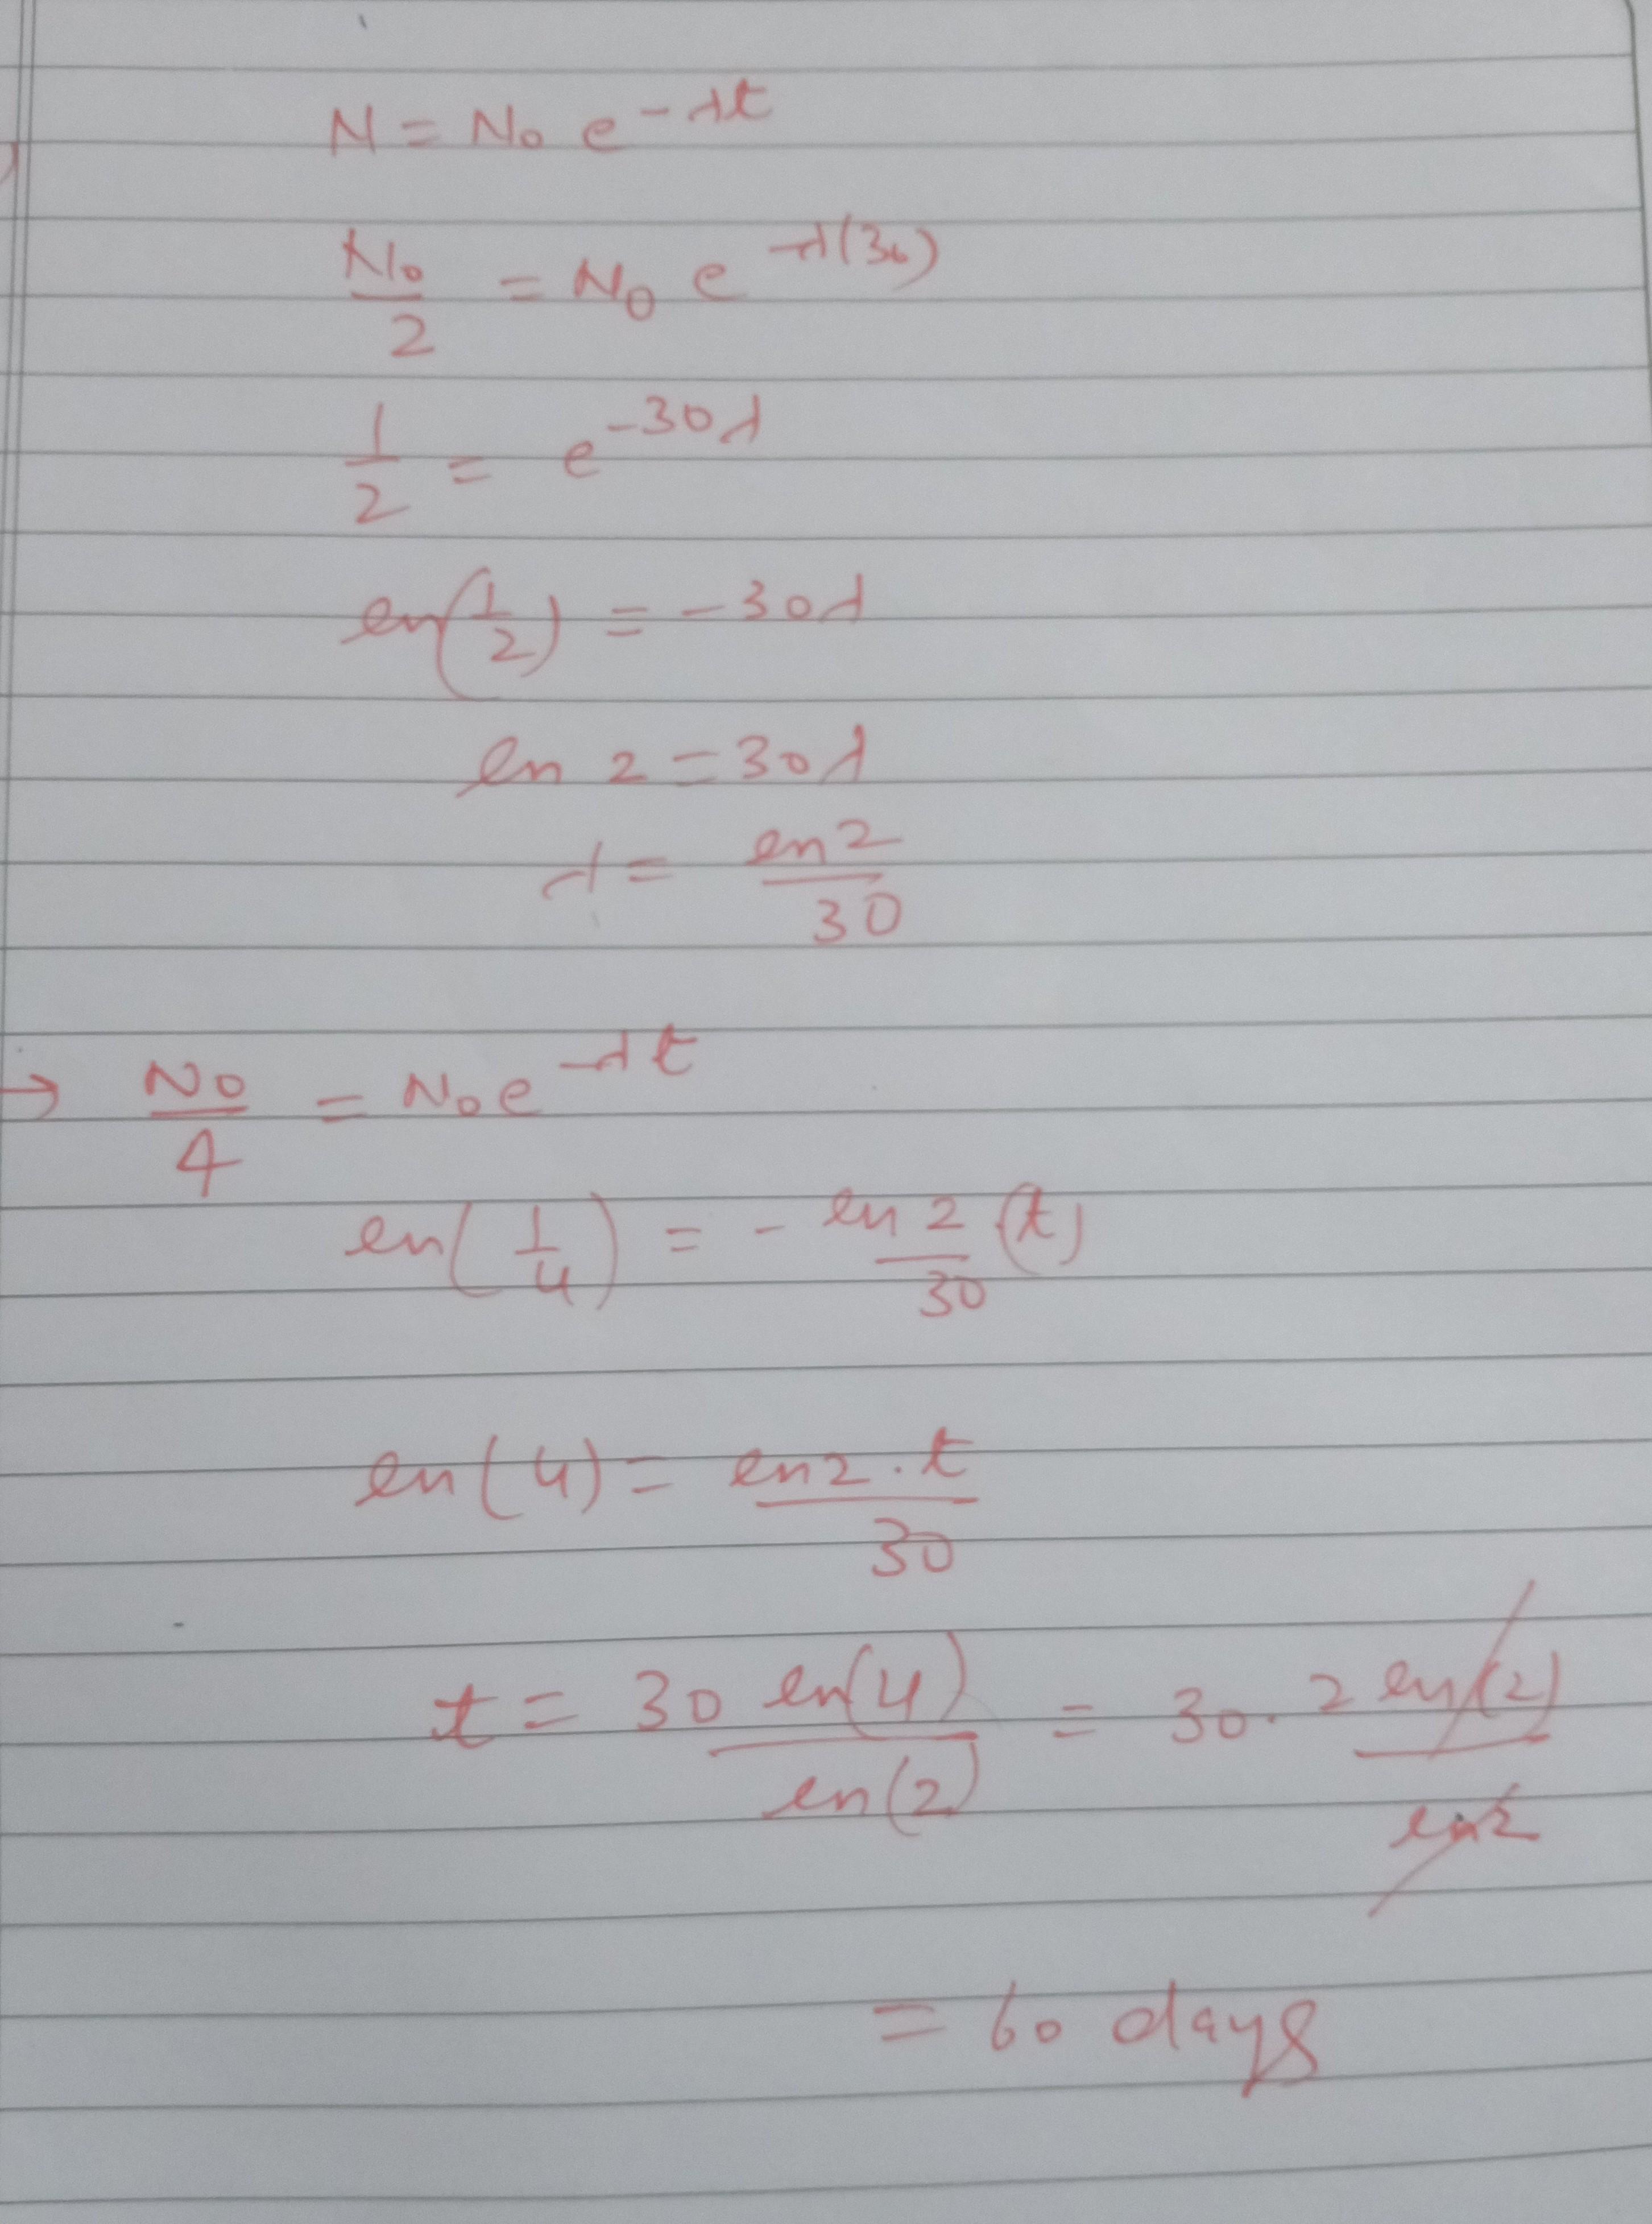 N = N₀ e^{-λt}
N₀/2 = N₀ e^{-λ(30)}
1/2 = e^{-30λ}
ln(1/2) = -30λ
ln 2 = 30λ
λ = ln 2/30
→ N₀/4 = N₀ e^{-λt}
ln(1/4) = - ln 2/30 (t)
ln(4) = ln 2 . t/30
t = 30 ln(4)/ln(2) = 30 . 2 ln(2)/ln 2
= 60 days